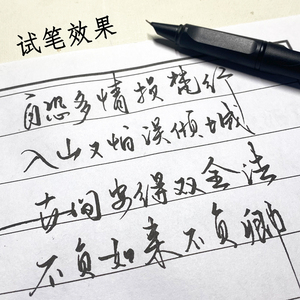 试笔效果
自恐多情损梵行
入山又怕误倾城
世间安得双全法
不负如来不负卿